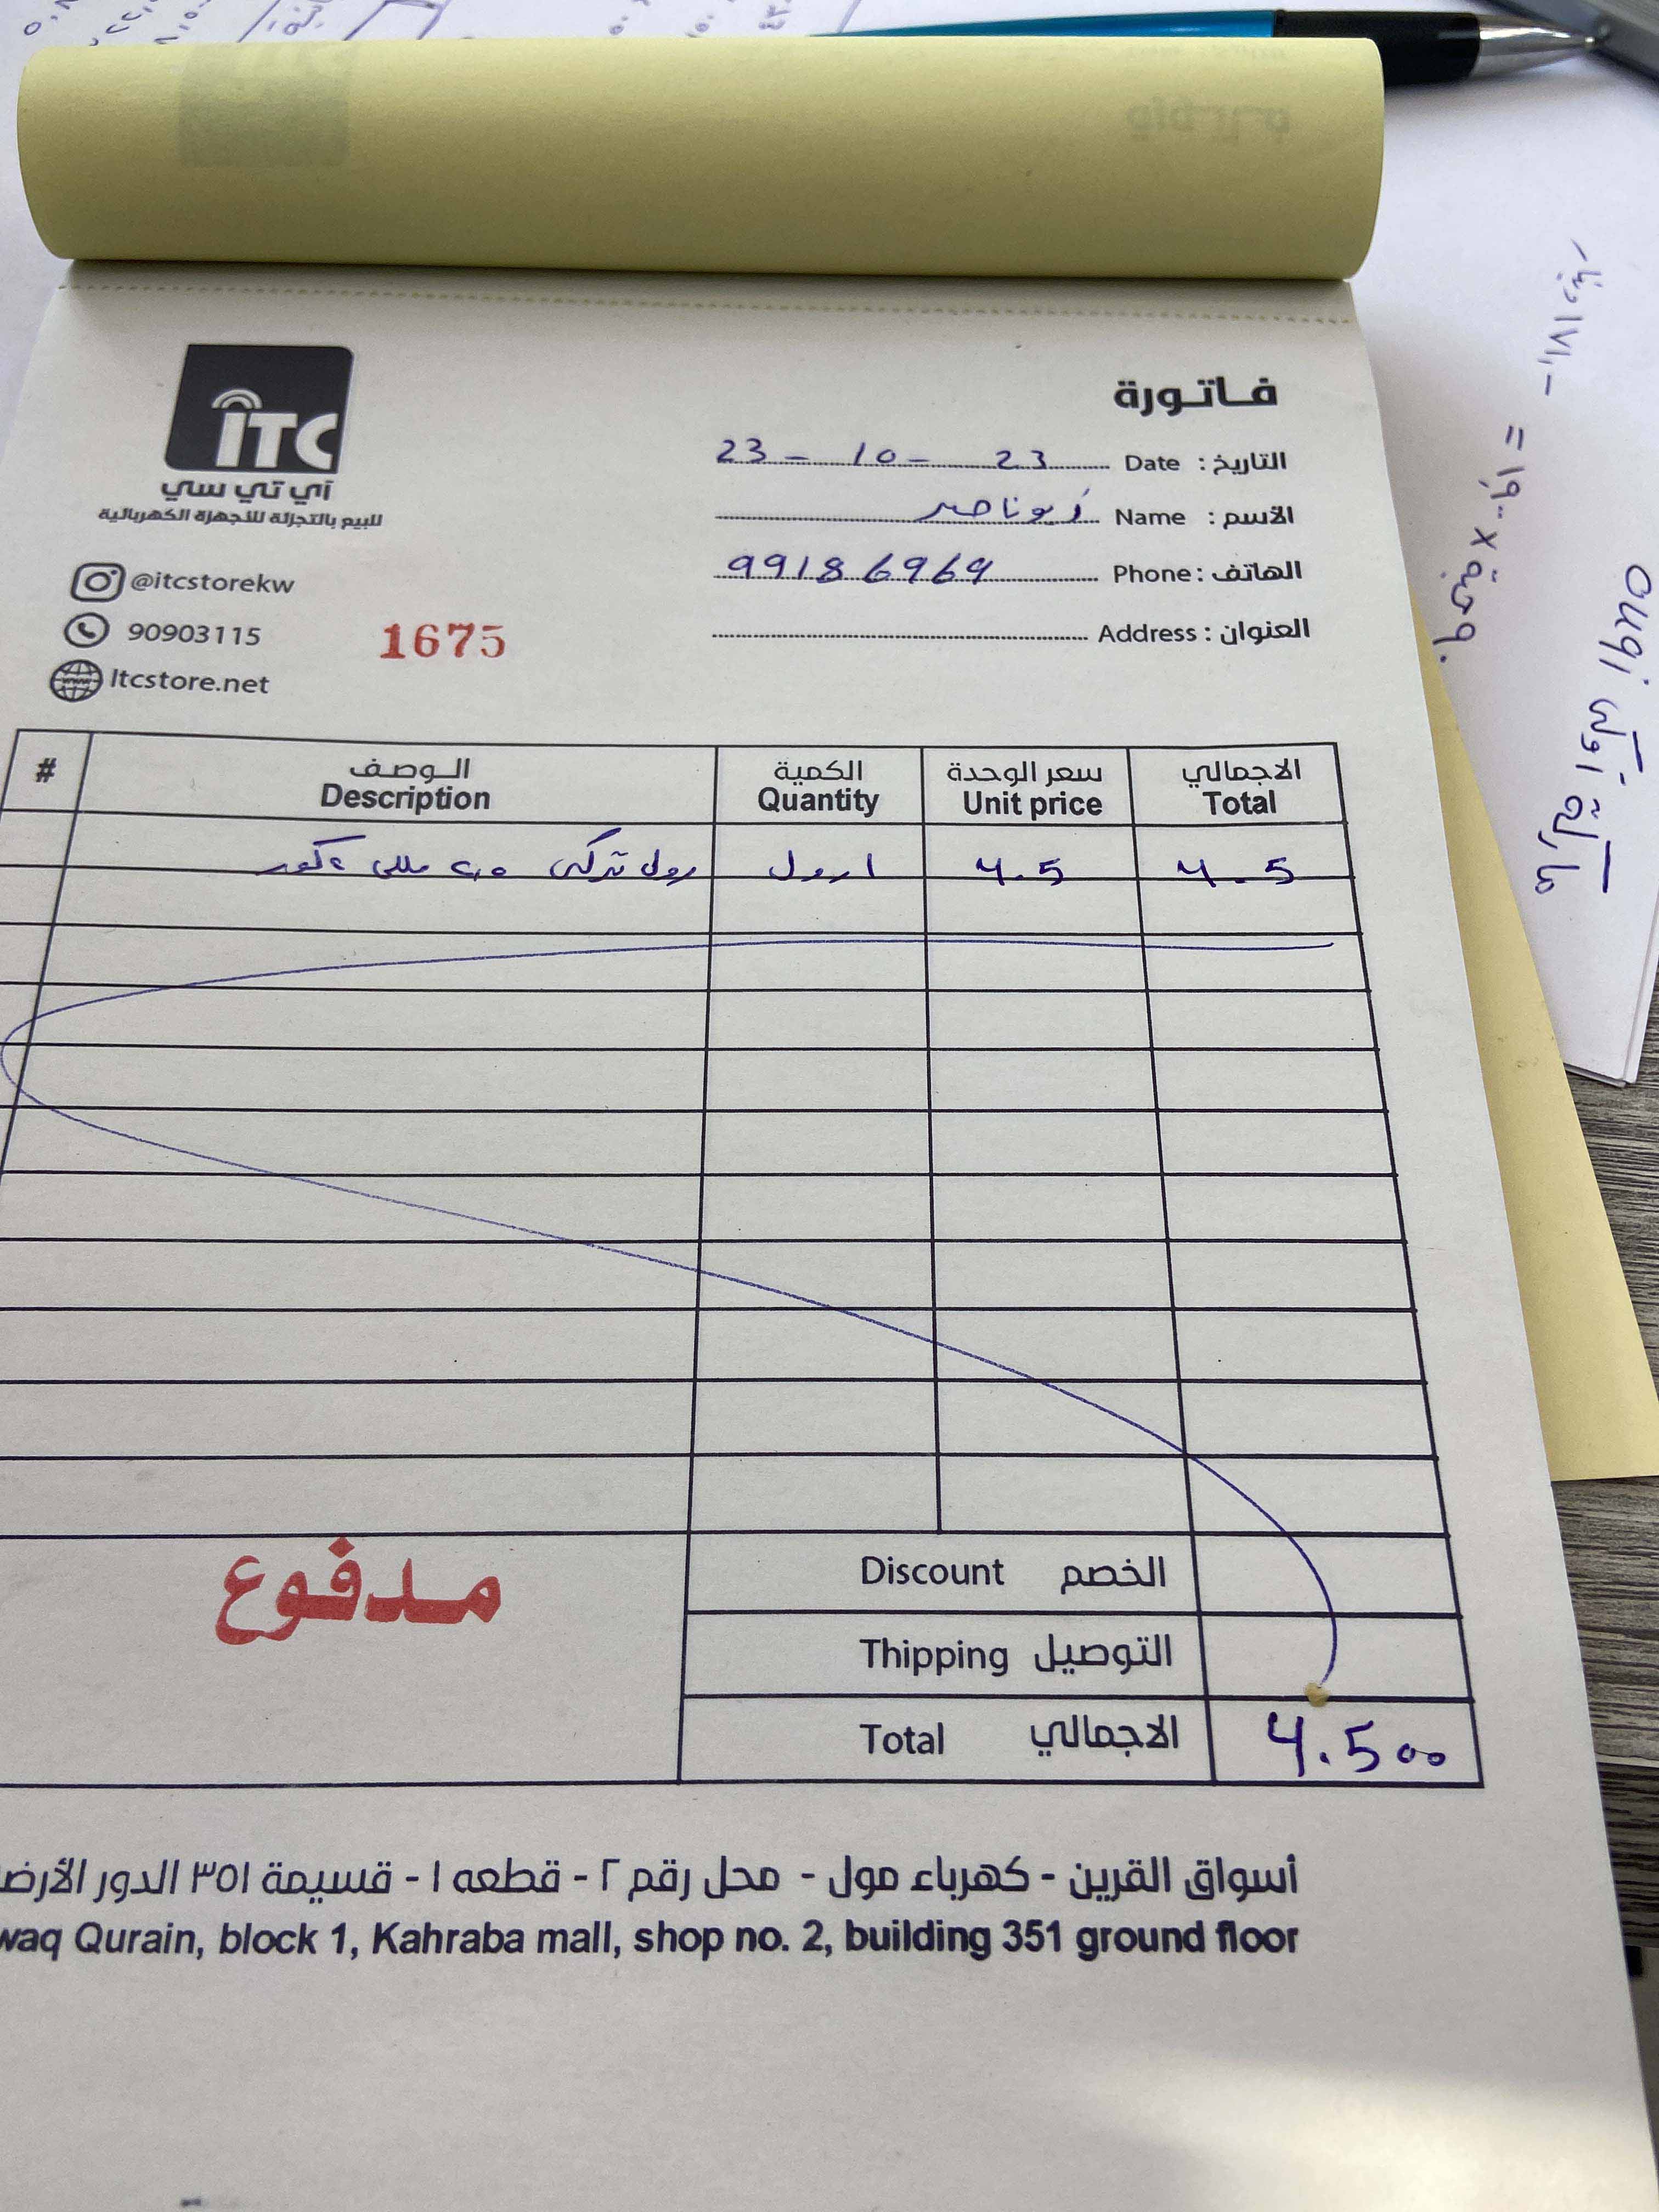 فاتورة
iTC
آي تي سي
للبيع بالتجزئة للأجهزة الكهربائية
@itcstorekw
90903115
Itcstore.net
1675
التاريخ : Date 23 - 10 - 23
الأسم : Name أبو ناصر
الهاتف : Phone 99186969
العنوان : Address
# الوصف الكمية سعر الوحدة الاجمالي
Description Quantity Unit price Total
رول تركي ٢,٥ مللي ٢ كور ١ رول 4.5 4.5
مدفوع
Discount الخصم
Thipping التوصيل
Total الاجمالي 4.500
أسواق القرين - كهرباء مول - محل رقم ٢ - قطعه ١ - قسيمة ٣٥١ الدور الأرض
waq Qurain, block 1, Kahraba mall, shop no. 2, building 351 ground floor